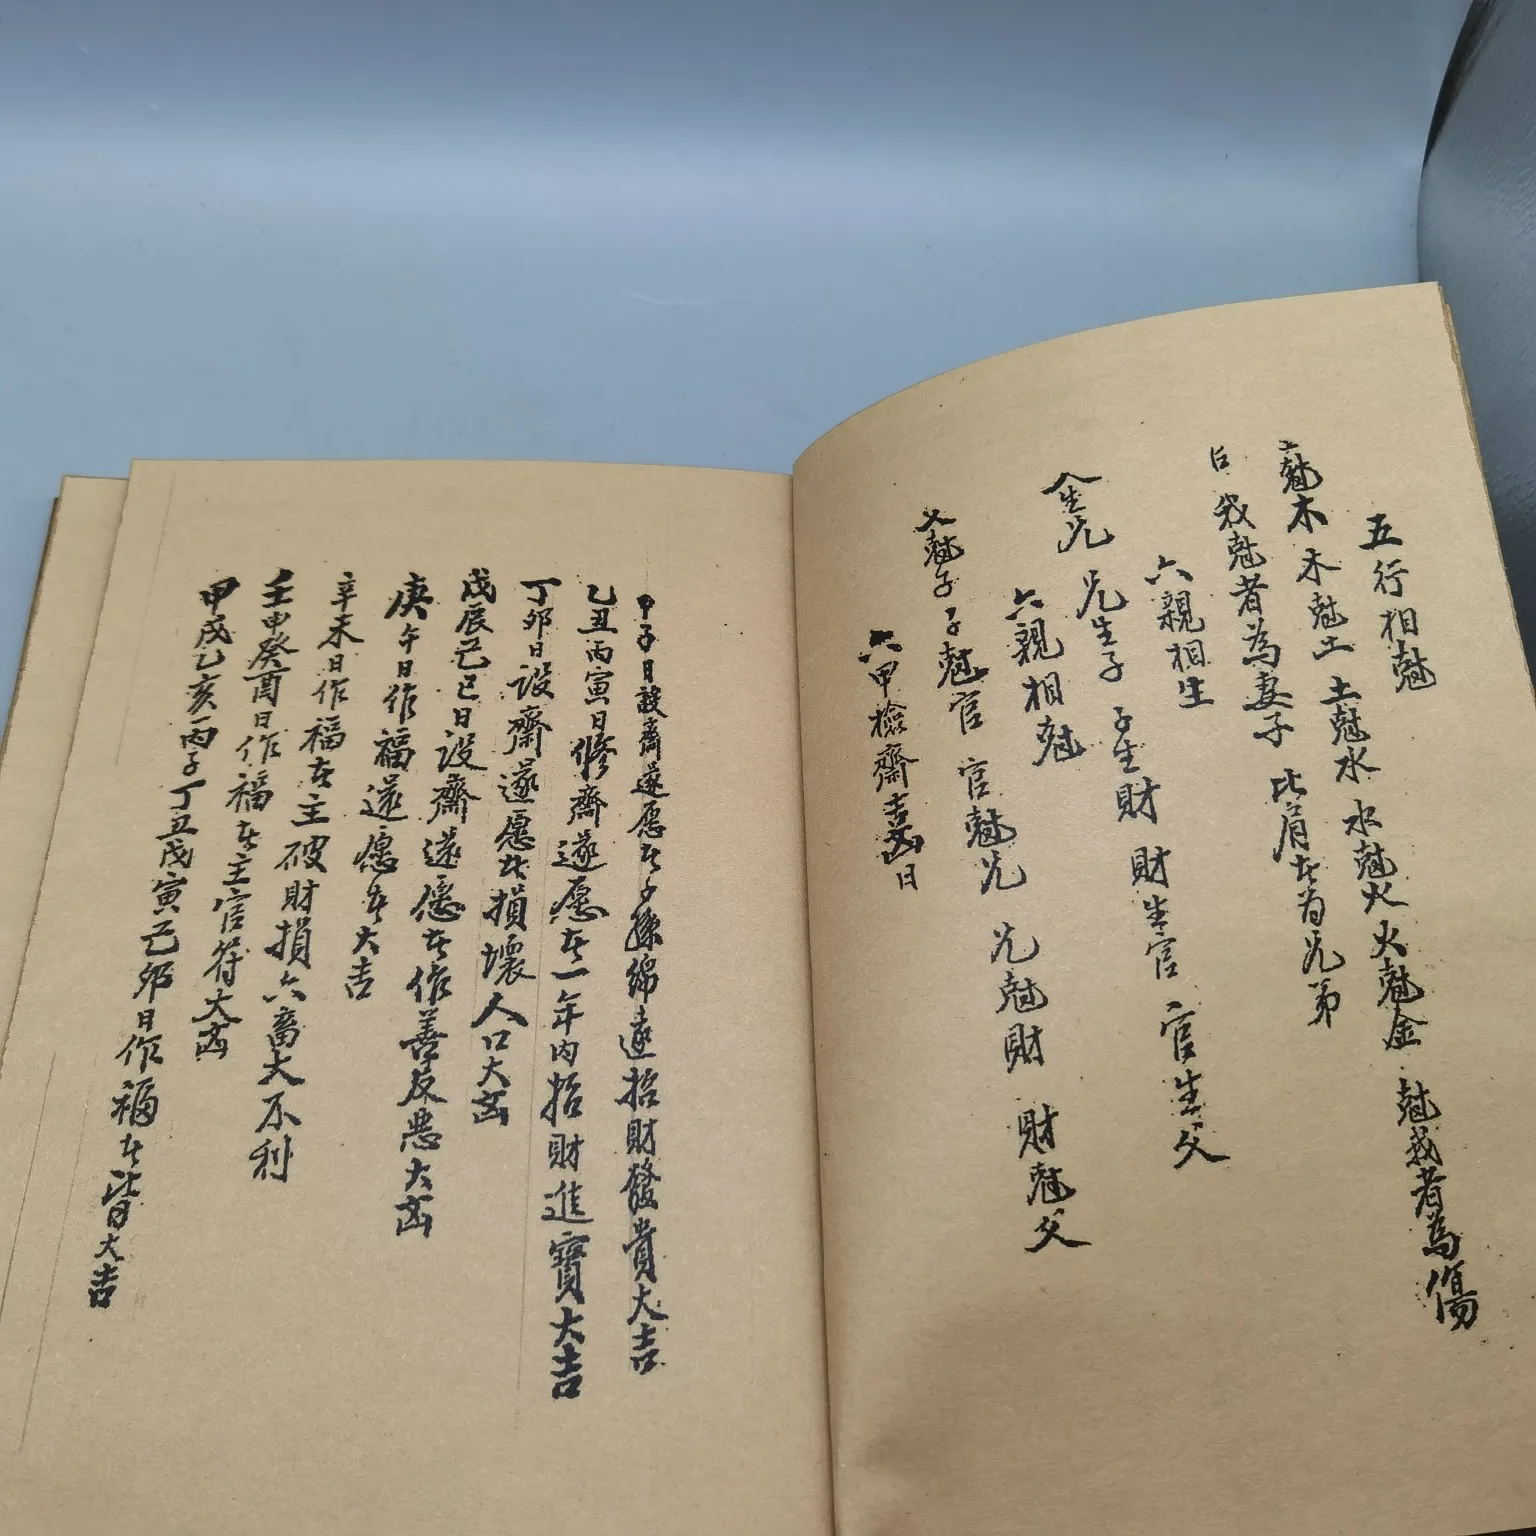 五行相尅
尅木 木尅土 土尅水 水尅火 火尅金 尅我者為傷
我尅者為妻子 比肩者为兄弟
六親相生
兄生子 子生財 財生官 官生父
六親相尅
父尅子 子尅官 官尅兄 兄尅財 財尅父
六甲檢齋吉凶日
甲子日設齋遂愿者子孫綿遠招財發貴大吉
乙丑丙寅日修齋遂愿者一年内招財進寶大吉
丁卯日设齋遂愿者損壞人口大凶
戊辰己巳日设齋遂愿者作善反恶大凶
庚午日作福遂愿者大吉
辛未日作福者主破財損六畜大不利
壬申癸酉日作福者主官符大凶
甲戌乙亥丙子丁丑戊寅己卯日作福者皆大吉